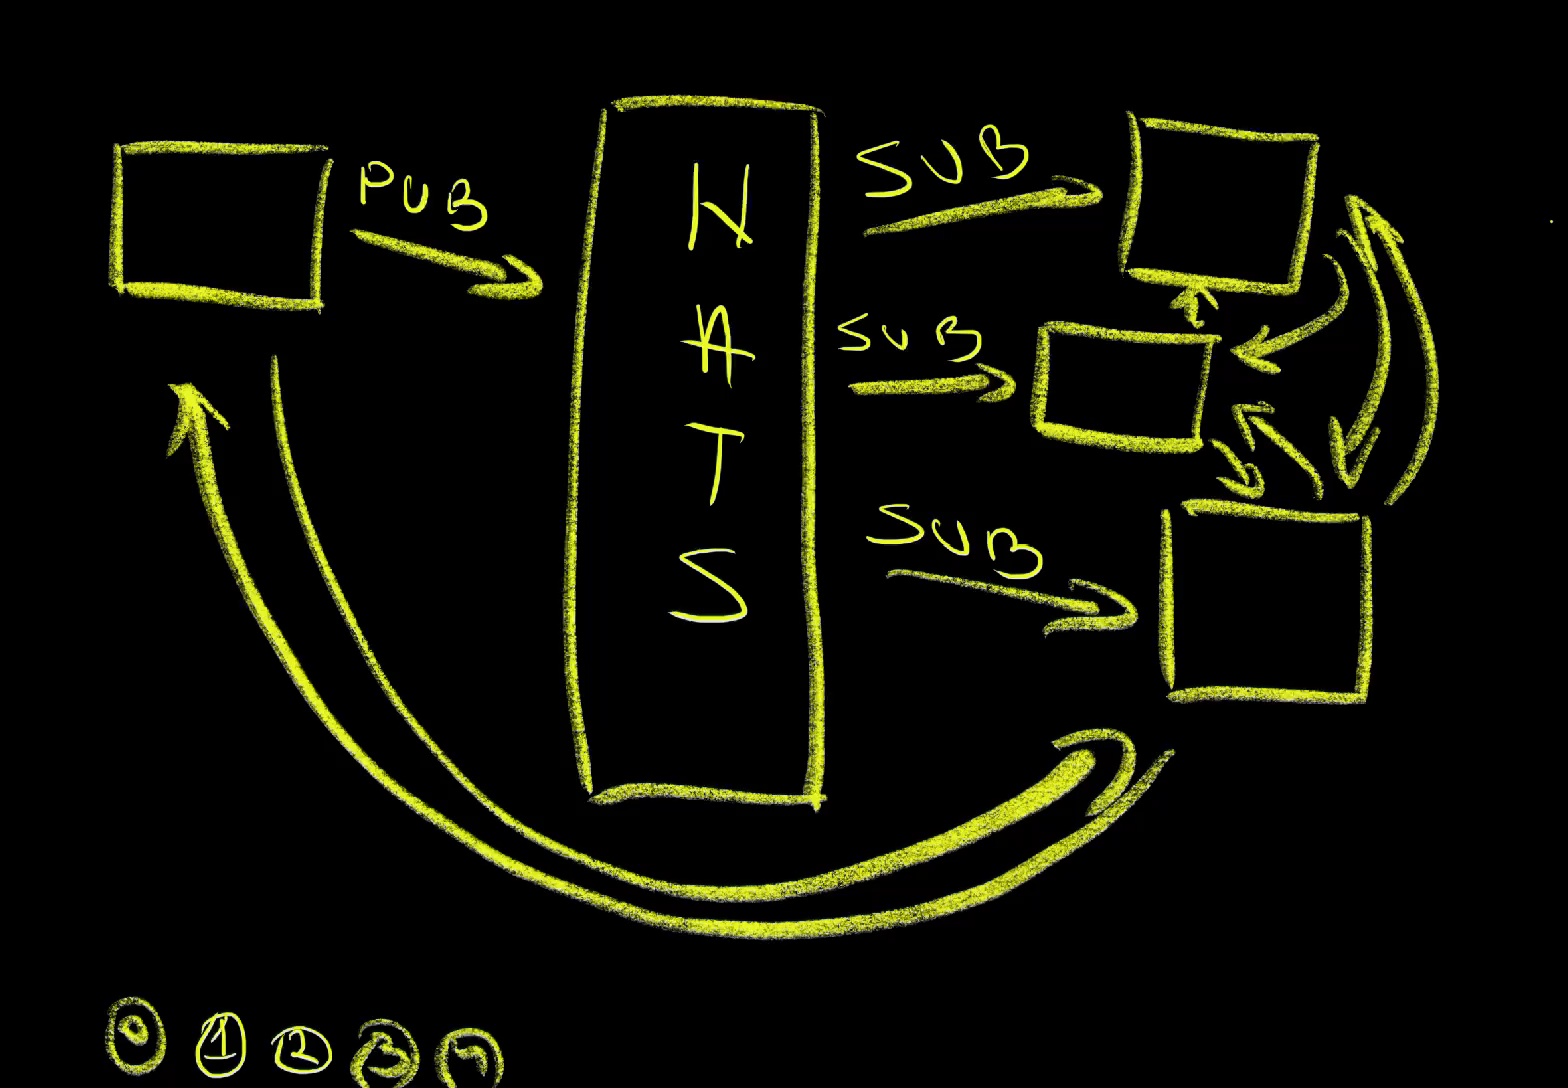 PUB
N
A
T
S
SUB
SUB
SUB
0 1 2 3